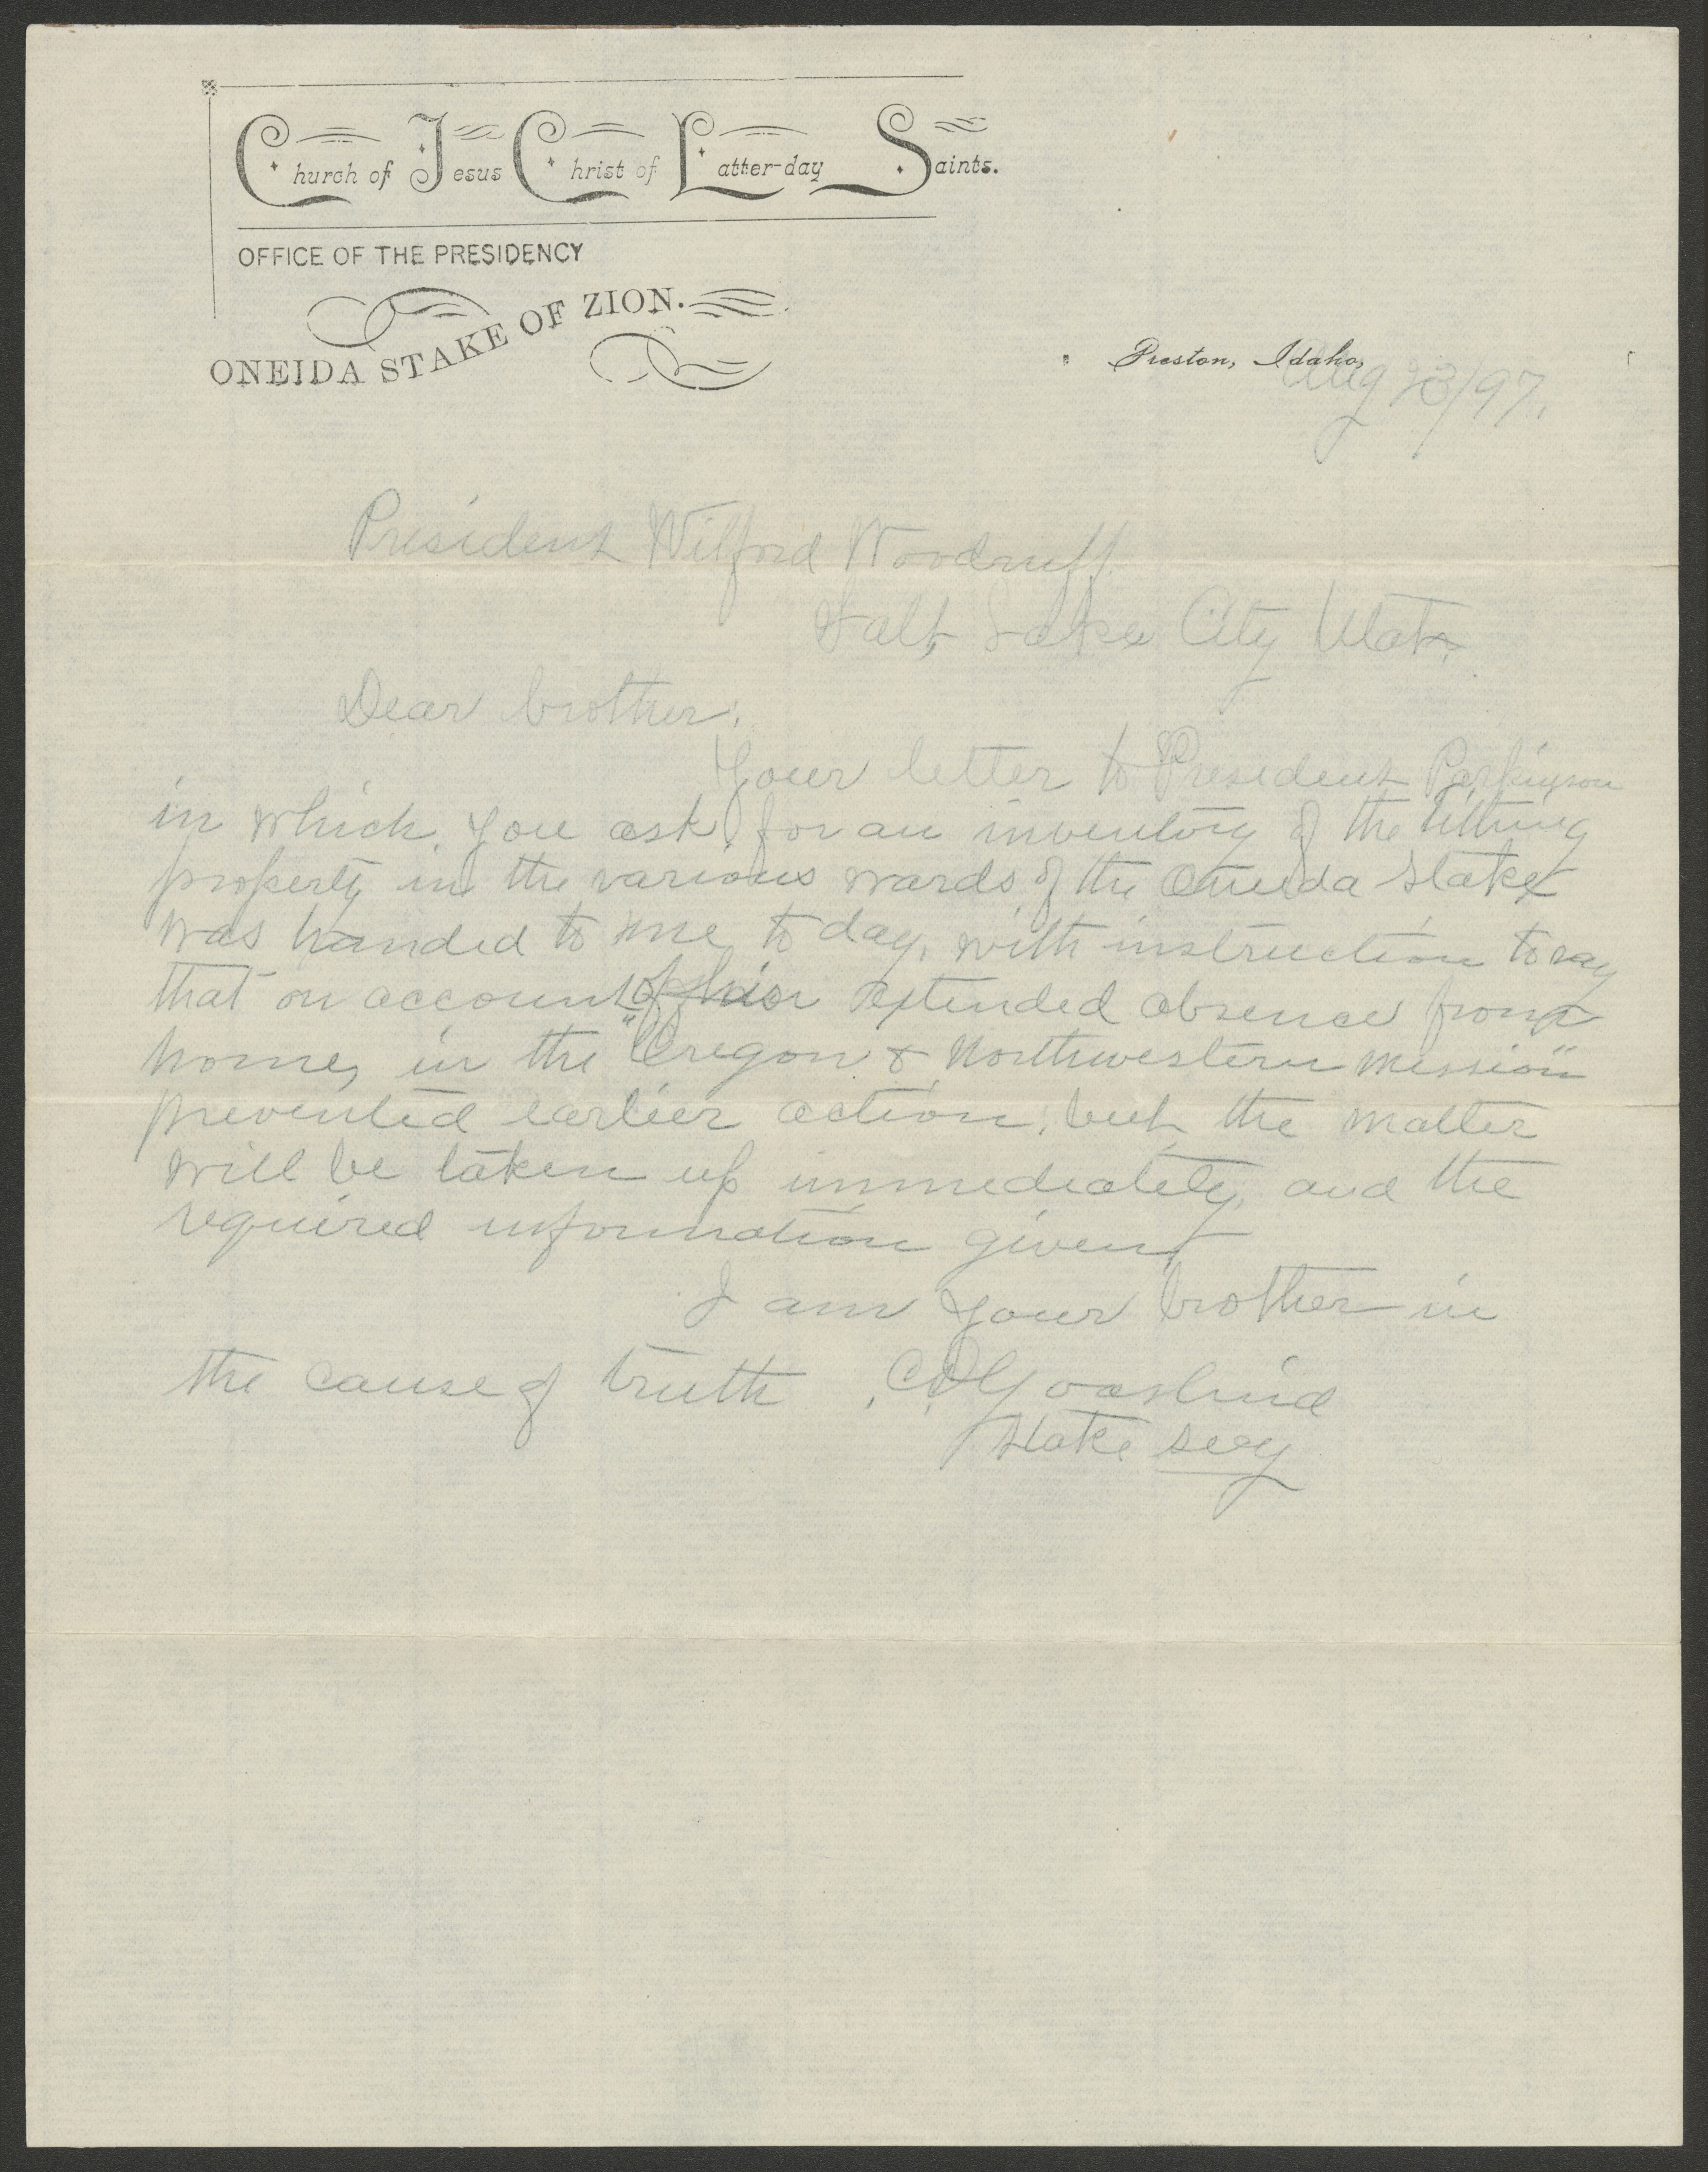 Church of Jesus Christ of Latter-day Saints.
OFFICE OF THE PRESIDENCY
ONEIDA STAKE OF ZION.
Preston, Idaho, Aug 23/97.
President Wilford Woodruff
Salt Lake City Utah.
Dear brother.
Your letter to President Parkinson
in which you ask for an inventory of the tithing
property in the various wards of the Oneida Stake
was handed to me to day, with instruction to say
that on account of his extended absence from
home, in the "Oregon & Northwestern Mission"
prevented earlier action, but the matter
will be taken up immediately, and the
required information given
I am your brother in
the cause of truth
Goaslind
Stake secy